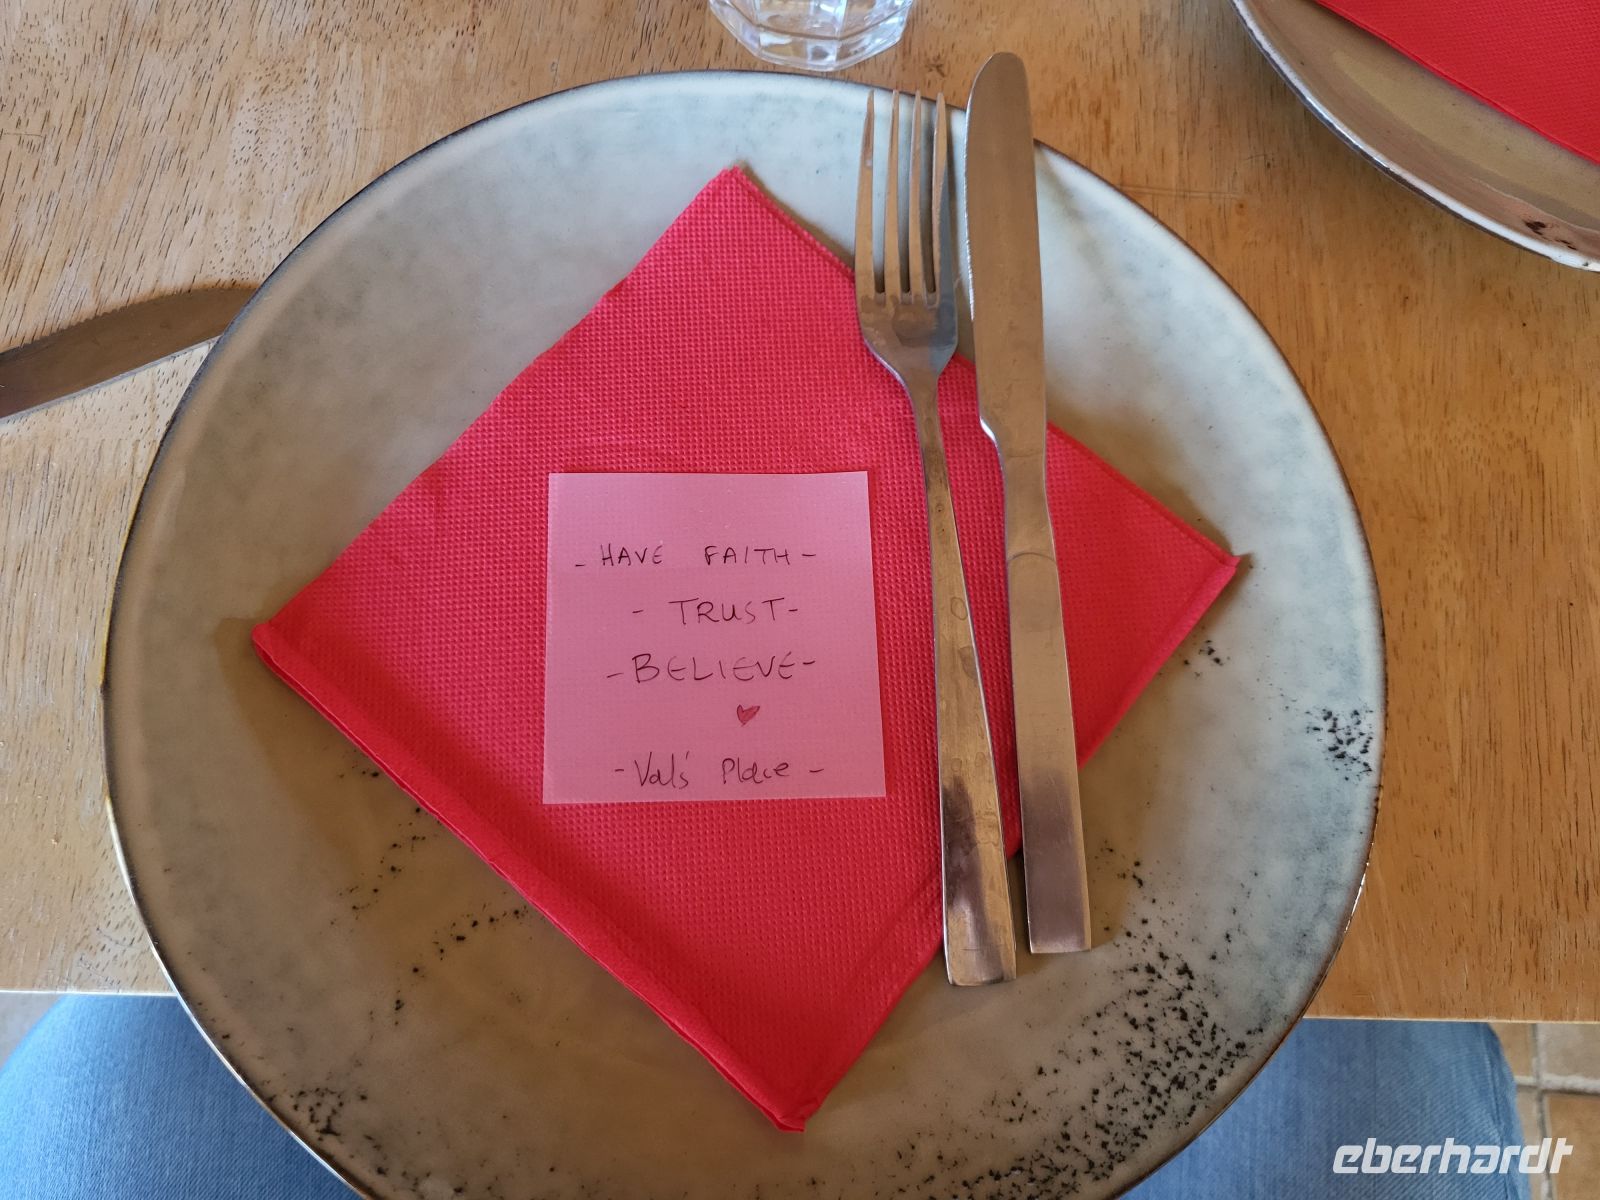 - HAVE FAITH -
- TRUST -
- BELIEVE -
- Val's Place -
eberhardt